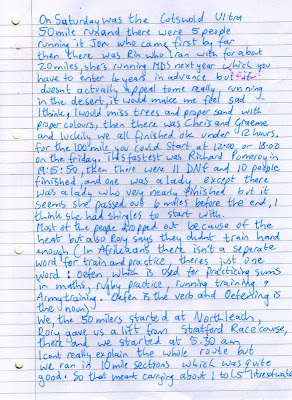 On Saturday was the Cotswold Ultra
50 mile run and there were 5 people
running it Jon who came first by far
then there was Rin who I ran with for about
20 miles, she's running MDS next year which you
have to enter 4 years in advance but it
doesnt actually appeal to me really, running
in the desert, it would make me feel sad
I think, I would miss trees and proper sand with
proper colours, then there was Chris and Graeme
and luckily we all finished ok under 12 hours.
for the 100 mile you could start at 12:00 or 18:00
on the friday. The fastest was Richard Pomeroy in
19:15:50, then there were 11 DNF and 10 people
finished, and one was a lady except there
was a lady who very nearly finished but it
seems she passed out 6 miles before the end, I
think she had shingles to start with.
Most of the people dropped out because of the
heat but also Rory says they didnt train hard
enough (In Afrikaans there isnt a separate
word for train and practice, theres just one
word: Oefen which is used for practicing sums
in maths, rugby practice, running training &
Army training. Oefen is the verb and Oefening is
the noun)
We, the 50 milers started at Northleach,
Rory gave us a lift from Stratford Race course,
there and we started at 5.30 am
I cant really explain the whole route but
we ran in 10 mile sections which was quite
good. So that meant carrying about 1 to 1.5 litres of water